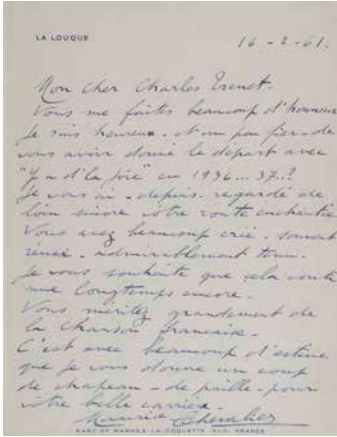 LA LOUQUE
16-2-61.
Mon cher Charles Trenet.
Vous me faites beaucoup d'honneur
Je suis heureux - et un peu fier - de
vous avoir donné le départ avec
"Y a d'la joie" en 1936...37..?
Je vous ai - depuis - regardé de
loin suivre votre route enchantée
Vous avez beaucoup créé - souvent
rénové - admirablement tenu.
Je vous souhaite que cela conti
nue longtemps encore.
Vous méritez grandement de
la Chanson française.
C'est avec beaucoup d'estime
que je vous donne un coup
de chapeau - de paille - pour
votre belle carrière.
Maurice Chevalier
PARC DE MARNES-LA-COQUETTE (S.-O.) FRANCE